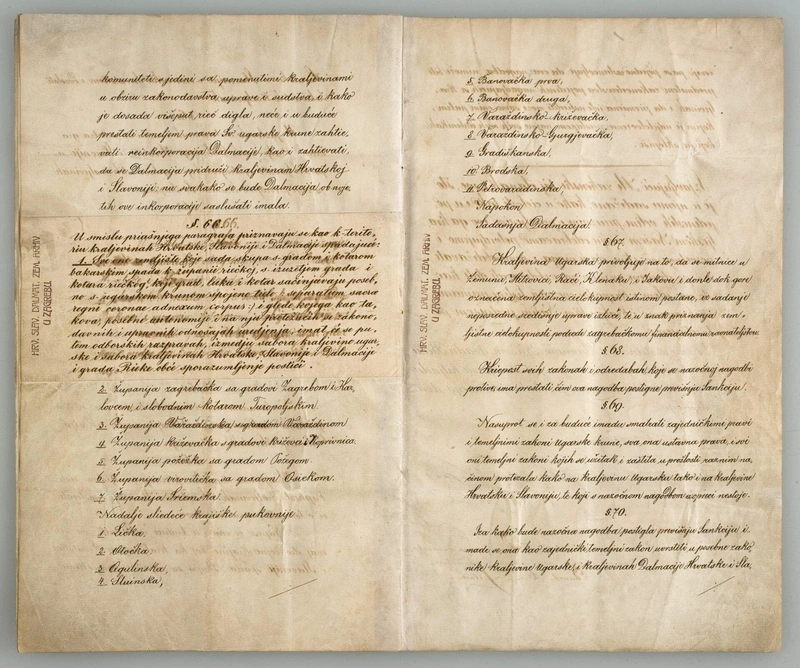 komuniteti sjedini sa pomenutimi kraljevinami
u obziru zakonodavstva uprave i sudstva, i kako
je dosada višeput rieč digla, neće i u buduće
prestati temeljem prava Sv. ugarske krune zahtie,
vati reinkorporaciju Dalmacije, kao i zahtievati,
da se Dalmacija pridruži kraljevinam Hrvatskoj
i Slavoniji nu svakako se bude Dalmacija ob uvje,
tih ove inkorporacije saslušati imala.
§. 66.
U smislu priašnjega paragrafa priznavaju se kao k terito,
riu kraljevinah Hrvatske, Slavonije i Dalmacije spadajuće:
1. Sve ono zemljište koje sada skupa s gradom i kotarom
bakarskim spada k županiji riečkoj, s izuzetjem grada i
kotara riečkog, koji grad, luka i kotar sačinjavaju poseb,
no s ugarskom krunom spojeno tielo (:separatum sacrae
regni coronae adnexum corpus:) i glede kojega kao ta,
kova, posebne autonomije i na nju protežućih se zakono,
davnih i upravnih odnošajah medjusobna, imat će se pu,
tem odborskih razpravah, izmedju sabora kraljevine ugar,
ske i sabora kraljevinah Hrvatske, Slavonije i Dalmacije
i grada Rieke obće sporazumljenje postići.
2. Županija zagrebačka sa gradovi Zagrebom i Kar,
lovcem, i slobodnim kotarom Turopoljskim
3. Županija Varaždinska s gradom Varaždinom
4. Županija križevačka s gradovi Križevci i Koprivnica.
5. Županija požežka sa gradom Požegom
6. Županija virovitička sa gradom Osiekom.
7. Županija Sriemska.
Nadalje sliedeće krajiške pukovnije
1. Lička,
2. Otočka
3. Ogulinska,
4. Sluinska,
HRV. SLAV. DALMAT. ZEM. ARHIV
U ZAGREBU
5. Banovačka prva,
6. Banovačka druga,
7. Varaždinsko križevačka,
8. Varaždinsko Gjurgjevačka,
9. Gradiškanska,
10. Brodska,
11. Petrovaradinska,
Napokon
Sadanja Dalmacija.
§ 67.
Kraljevina Ugarska privoljuje na to, da se mitnice u
Zemunu, Mitrovici, Rači, Klenaku, i Jakovu i donle dok gore
označena zemljištna cielokupnost istinom postane, iz sadanje
neposredne središnje uprave izluče, te u znak priznanja zem,
ljištne cielokupnosti podrede zagrebačkomu financialnomu ravnateljstvu.
§ 68.
Kriepost svih zakonah i odredabah, koje se nazočnoj nagodbi
protive, ima prestati čim ova nagodba postigne previšnju Sankciju.
§ 69.
Nasuprot se i za buduće imadu smatrati zajedničkimi pravi
i temeljnimi zakoni Ugarske krune, sva ona ustavna prava, i svi
oni temeljni zakoni kojih se užitak i zaštita u prošlosti raznim na,
činom protezala kako na kraljevinu Ugarsku tako i na kraljevine
Hrvatsku i Slavoniju, te koji s nazočnom nagodbom u opreci nestoje.
§ 70.
Iza kako bude nazočna nagodba postigla previšnju Sankciju i,
made se ona kao zajednički temeljni zakon uvrstiti u posebne zako,
nike kraljevine Ugarske, i kraljevinah Dalmacije Hrvatske i Sla,
HRV. SLAV. DALMAT. ZEM. ARHIV
U ZAGREBU